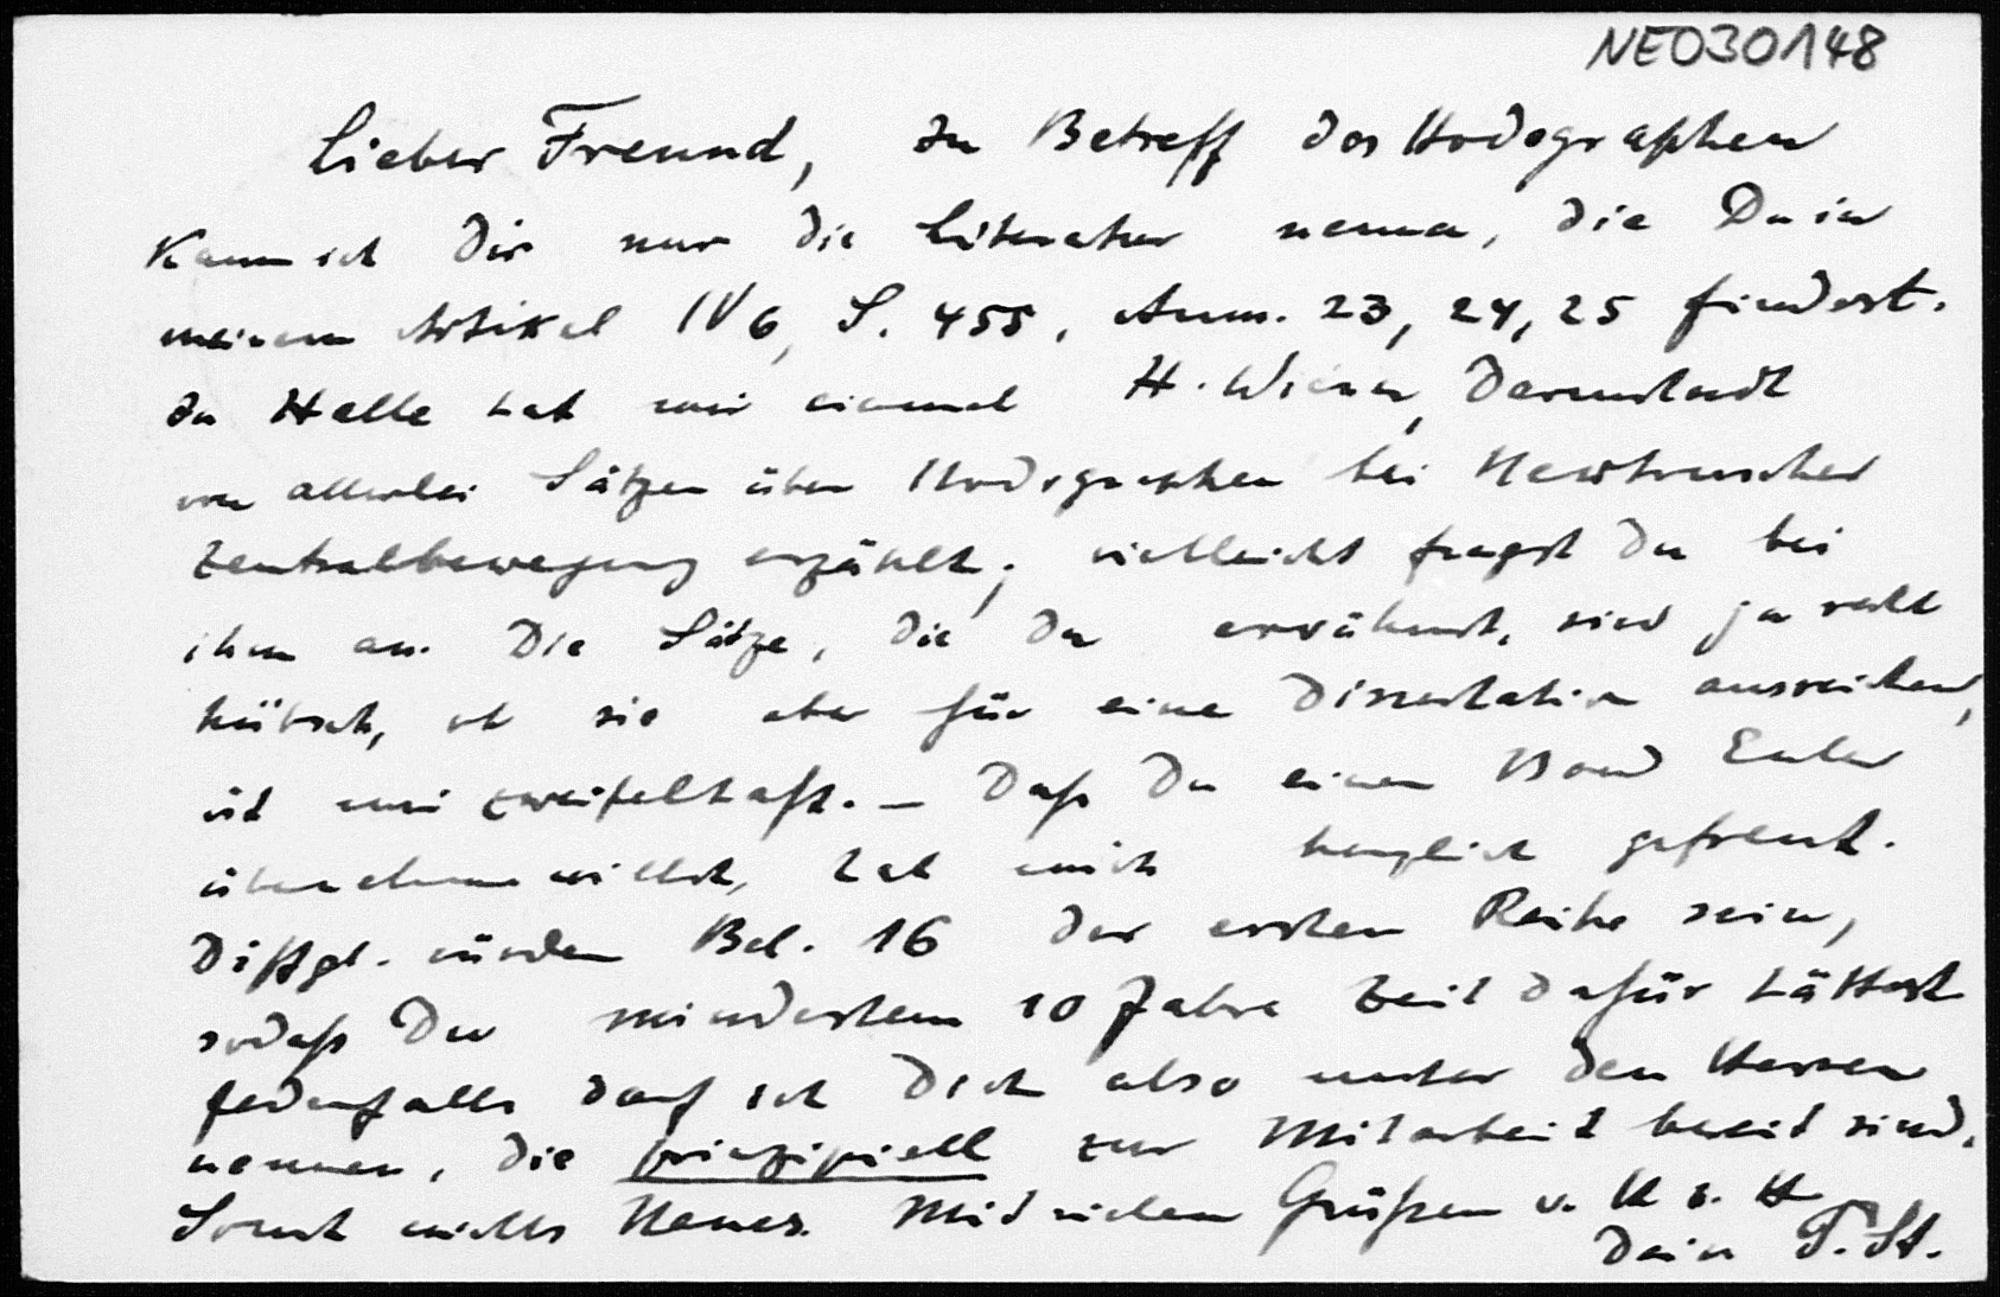 NEO30148
Lieber Freund, In Betreff des Hodographen
kann ich Dir nur die Literatur nennen, die Du in
meinem Artikel IV 6, S. 455, Anm. 23, 24, 25 findest.
In Halle hat mir einmal H. Wiener, Darmstadt
von allerlei Sätzen über Hodographen bei Newtonscher
Zentralbewegung erzählt; vielleicht fragst Du bei
ihm an. Die Sätze, die Du erwähnst, sind ja recht
hübsch, ob sie aber für eine Dissertation ausreichen,
ist mir zweifelhaft. – Daß Du einen Band Euler
übernehmen willst, hat mich herzlich gefreut.
Diffgl. würden Bd. 16 der ersten Reihe sein,
sodaß Du mindestens 10 Jahre Zeit dafür hättest
jedenfalls darf ich Dich also unter den Herren
nennen, die prinzipiell zur Mitarbeit bereit sind.
Sonst nichts Neues. Mit vielen Grüßen v. H. z. H.
Dein P. St.